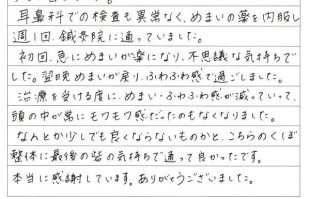 耳鼻科での検査も異常なく、めまいの薬を内服し
週1回、鍼灸院に通っていました。
初回、急にめまいが楽になり、不思議な気持ちで
した。翌晩めまいが戻り、ふわふわ感で過ごしました。
治療を受ける度に、めまい・ふわふわ感が減っていって、
頭の中が常にモワモワ感だったのもなくなりました。
なんとか少しでも良くならないものかと、こちらのくぼ
整体に最後の砦の気持ちで通って良かったです。
本当に感謝しています。ありがとうございました。